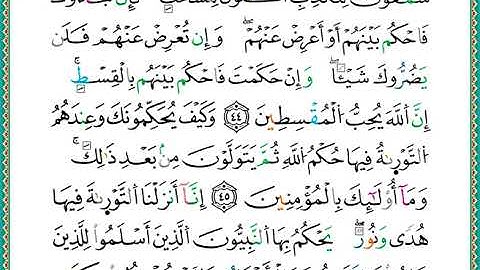 فَاحْكُم بَيْنَهُمْ أَوْ أَعْرِضْ عَنْهُمْ وَإِن تُعْرِضْ عَنْهُمْ فَلَن
يَضُرُّوكَ شَيْـًٔا وَإِنْ حَكَمْتَ فَاحْكُم بَيْنَهُم بِالْقِسْطِ
إِنَّ اَللَّهَ يُحِبُّ اُلْمُقْسِطِينَ ٤٤ وَكَيْفَ يُحَكِّمُونَكَ وَعِندَهُمُ
اُلتَّوْرَىٰةُ فِيهَا حُكْمُ اُللَّهِ ثُمَّ يَتَوَلَّوْنَ مِنۢ بَعْدِ ذَٰلِكَ
وَمَآ أُوْلَٰٓئِكَ بِالْمُؤْمِنِينَ ٤٥ إِنَّآ أَنزَلْنَا اَلتَّوْرَىٰةَ فِيهَا
هُدًى وَنُورٌ يَحْكُمُ بِهَا اَلنَّبِيُّونَ اَلَّذِينَ أَسْلَمُوا لِلَّذِينَ